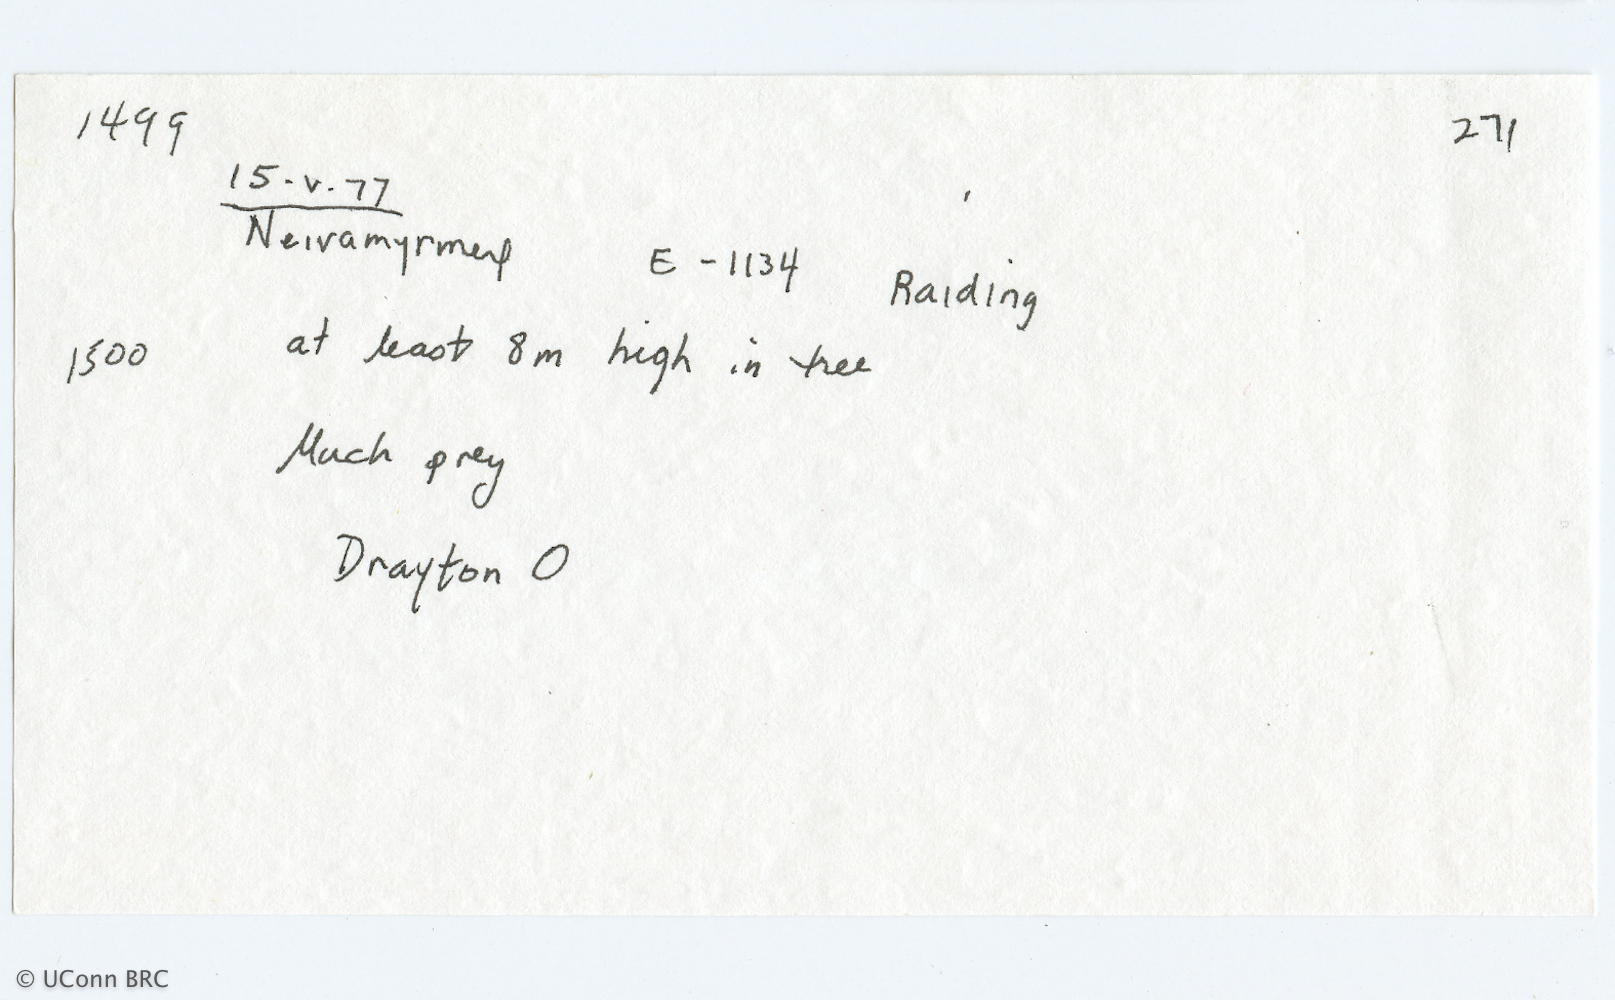 1499 271
15-v-77
Neivamyrmex E-1134 Raiding
1500 at least 8m high in tree
Much prey
Drayton O
© UConn BRC